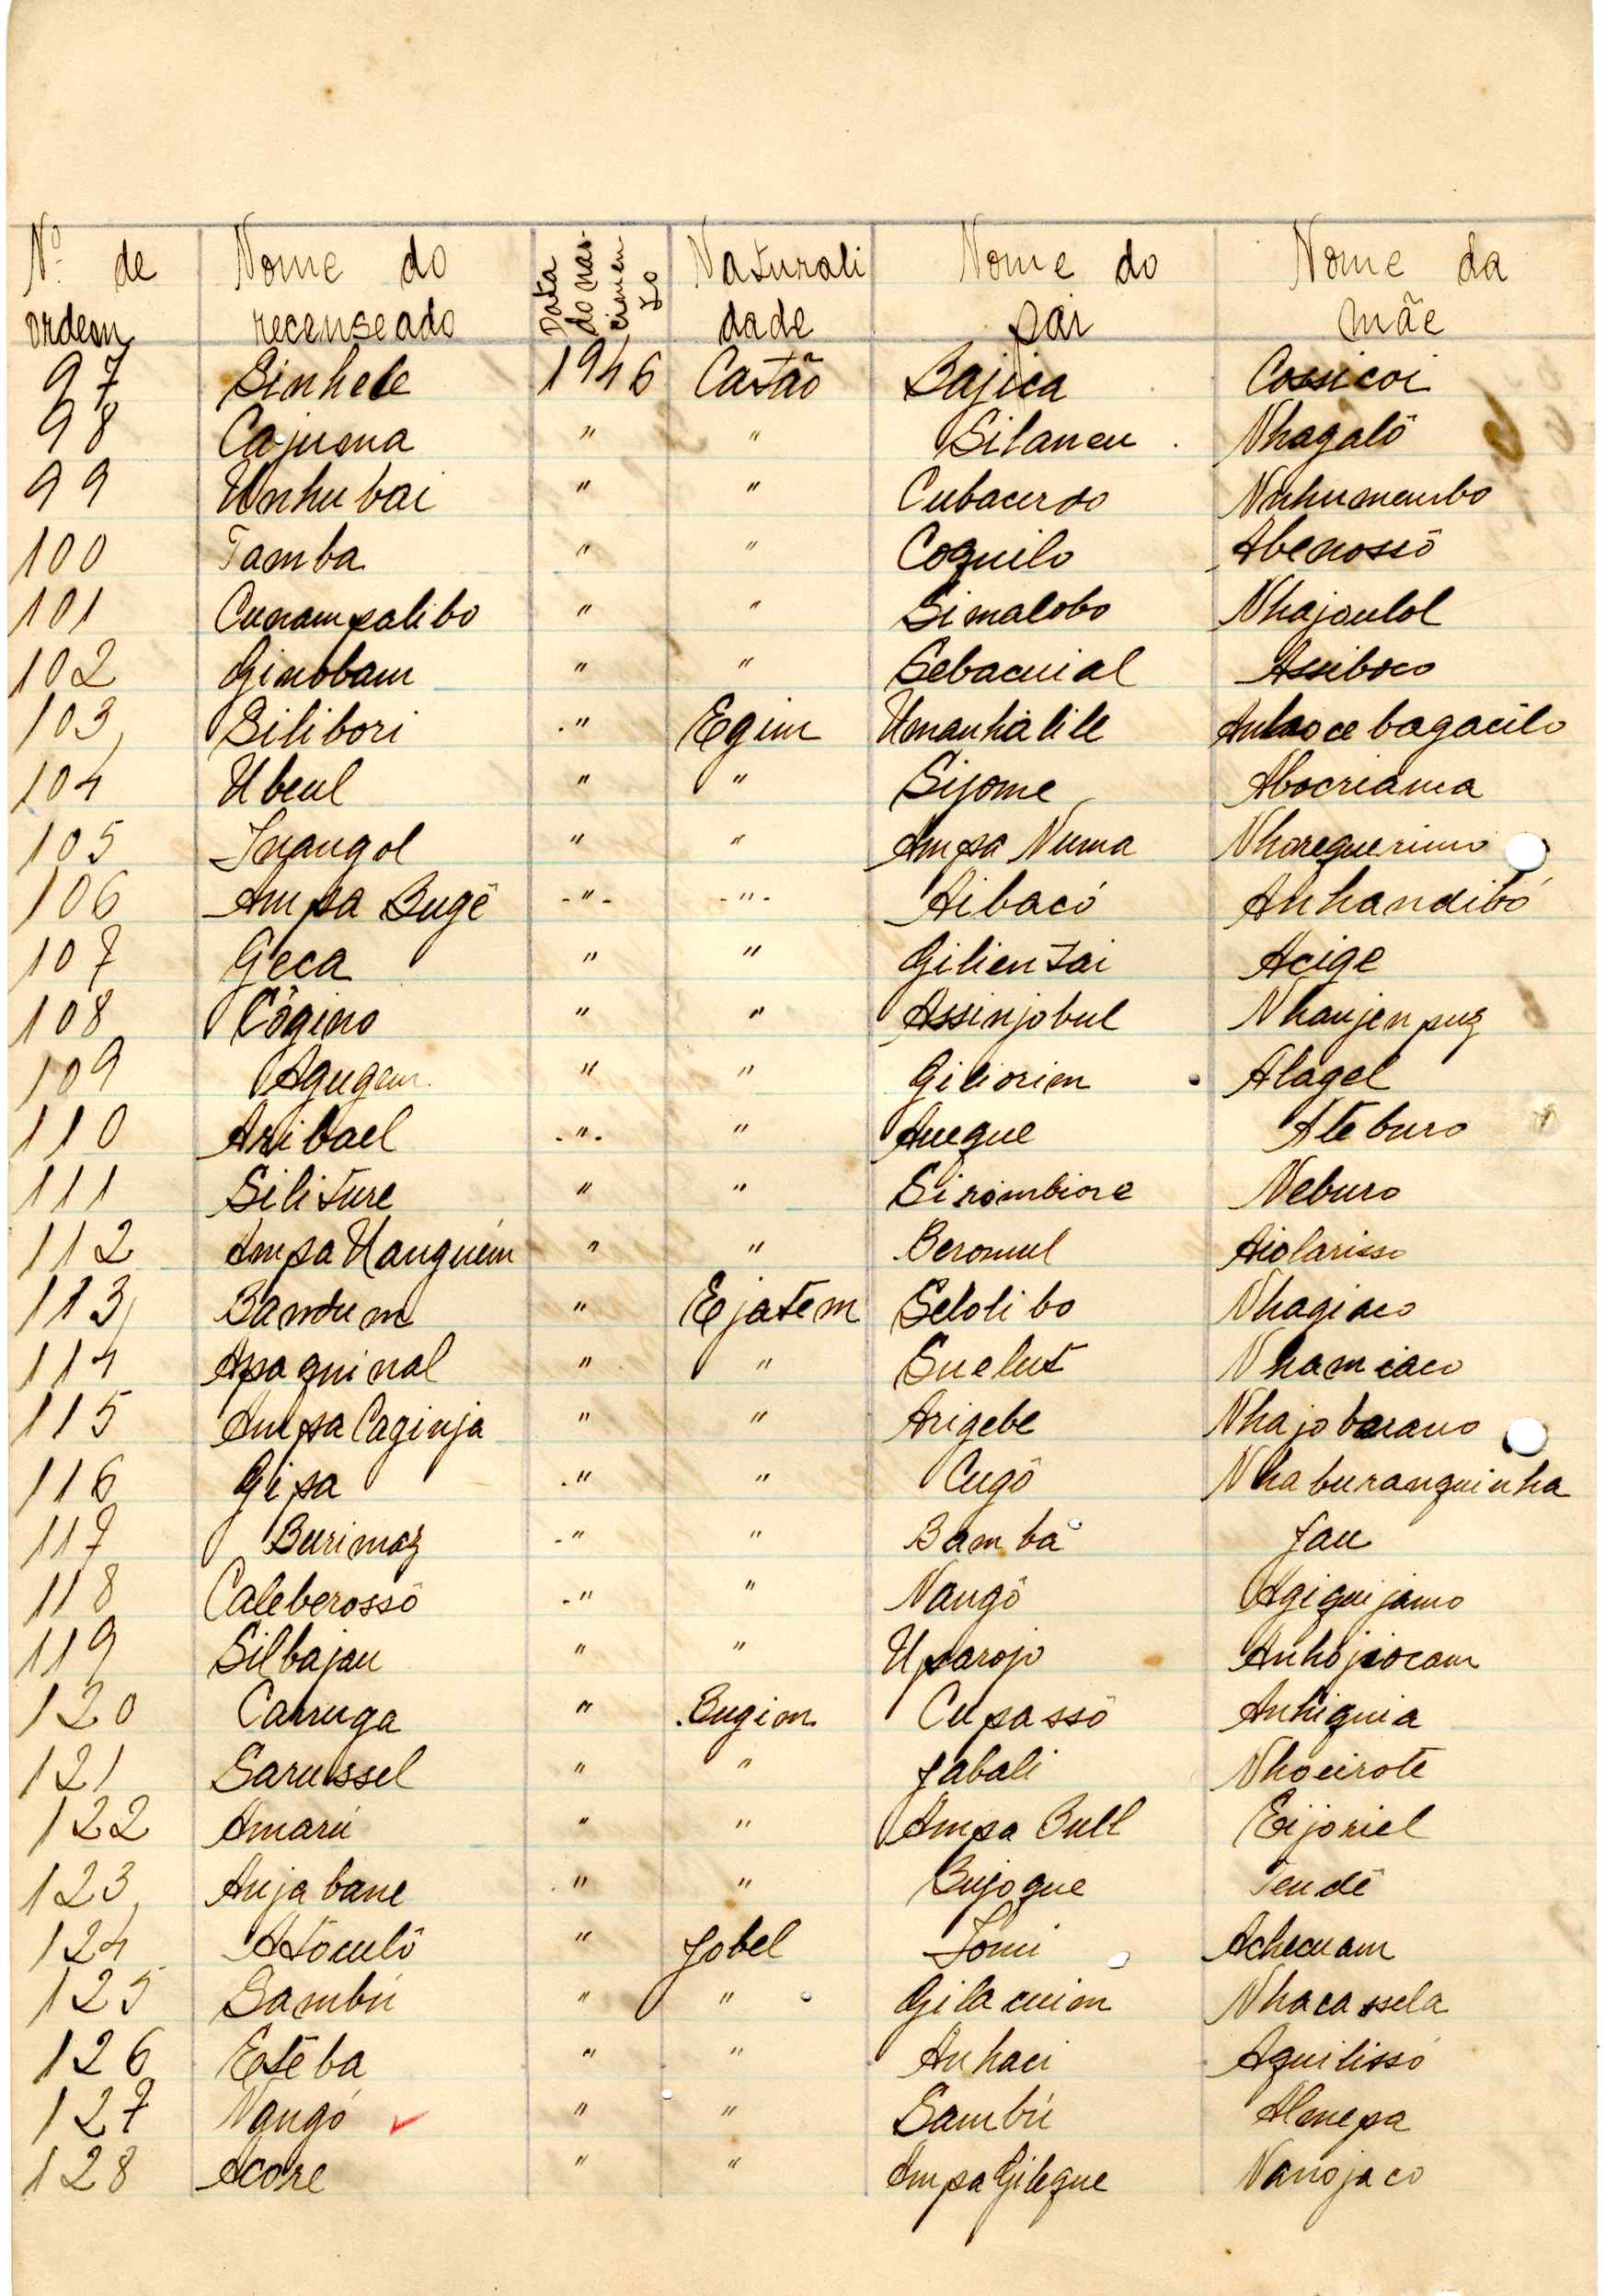 Nº de ordem Nome do recenseado Data do nascimento Naturalidade Nome do pai Nome da mãe
97 Sinhele 1946 Castão Bajica Cossicoi
98 Cajuma " " Silancu Nhagalô
99 Unhubai " " Cubacerdo Nuhumembo
100 Tamba " " Coquilo Abenossô
101 Cunampalibo " " Simalobo Nhajoulol
102 Ginobam " " Sebacuial Assiboco
103 Silibori " Egim Umanhalile
104 Ubeul " " Sijome Abocriama
105 Inangol " " Ampa Numa Nhoreguerimo
106 Ampa Bugê " " Aibacó Anhandibó
107 Geca " " Gilientai Acige
108 Côgino " " Assinjobul Nhanjenpuz
109 Agugam " " Giliorim Alagel
110 Aribael " " Auegue Ateburo
111 Siliture " " Sirombiore Neburo
112 Ampa Uanguém " " Beromul Aiolarisso
113 Bandum " Ejatem Selolibo Nhagiaco
114 Apaquinal " " Suelut Nhamiaco
115 Ampa Caginja " " Arigebe Nhajobarano
116 Gipa " " Cugô Nhaburanguinha
117 Burimoz " " Bamba Jau
118 Caleberossô " " Nangô Agiguijamo
119 Silbajau " " Uparojo Anhojiocam
120 Carruga " Bugim Cupassô Anhiguia
121 Sarussel " " Jabali Nhoeirote
122 Amarú " " Ampa Bull Eijoriel
123 Anjabane " " Bujogue Tendê
124 Atôculô " Jobel Tomi Achecuam
125 Sambú " " Gilacuim Nhacassela
126 Estêba " " Anhaci Aguilissó
127 Nangó " " Sambú Almepa
128 Acore " " Ampa Gilegue Nanojaco